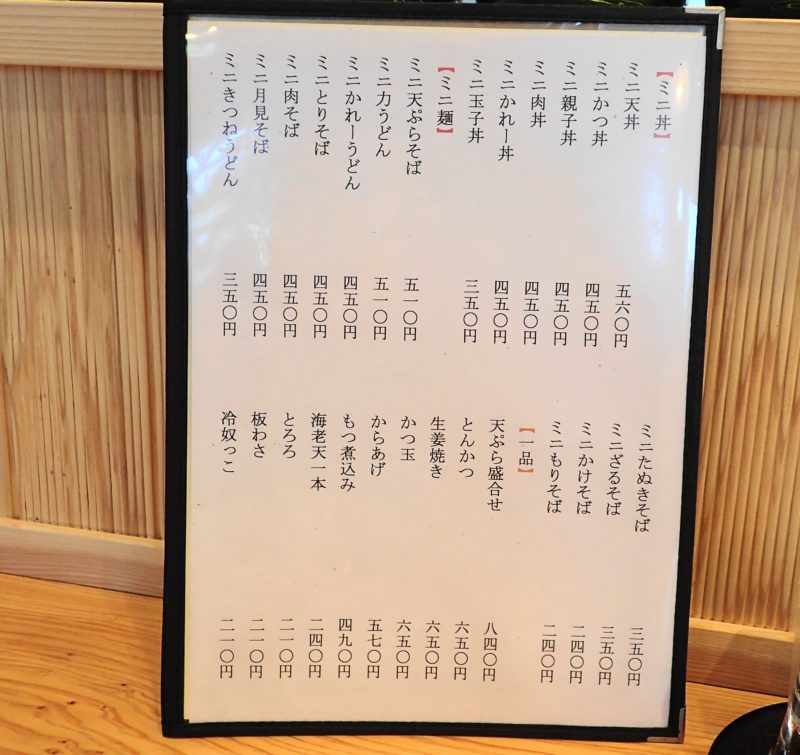 【ミニ丼】
ミニ天丼 五六〇円
ミニかつ丼 四五〇円
ミニ親子丼 四五〇円
ミニ肉丼 四五〇円
ミニかれー丼 四五〇円
ミニ玉子丼 三五〇円
【ミニ麺】
ミニ天ぷらそば 五一〇円
ミニ力うどん 五一〇円
ミニかれーうどん 四五〇円
ミニとりそば 四五〇円
ミニ肉そば 四五〇円
ミニ月見そば 四五〇円
ミニきつねうどん 三五〇円
ミニたぬきそば 三五〇円
ミニざるそば 三五〇円
ミニかけそば 二四〇円
ミニもりそば 二四〇円
【一品】
天ぷら盛合せ 八四〇円
とんかつ 六五〇円
生姜焼き 六五〇円
かつ玉 六五〇円
からあげ 五七〇円
もつ煮込み 四九〇円
海老天一本 二四〇円
とろろ 二一〇円
板わさ 二一〇円
冷奴っこ 二一〇円